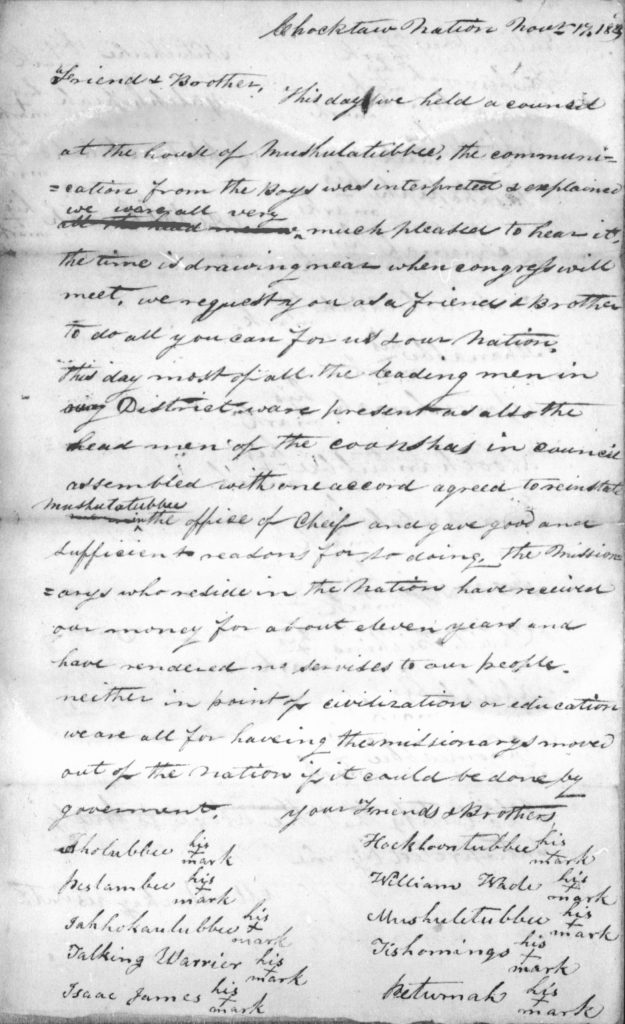 Chocktaw Nation Novr 17, 18
Friend & Brother, This day we held a council
at the house of Mushulatubbee, the communi-
=cation from the Boys was interpreted & explained
we ware all very
much pleased to hear it,
the time is drawing near when congress will
meet, we request you as a friend & Brother
to do all you can for us & our Nation,
this day most of all the leading men in
District ware present as also the
head men of the coonshas in council
assembled with one accord agreed to reinstate
Mushulatubbee
in the office of Cheif and gave good and
sufficient reasons for so doing, the Mission
=arys who reside in the Nation have received
our money for about eleven years and
have rendered no servises to our people.
neither in point of civilization or education
we are all for haveing the missionarys moved
out of the nation if it could be done by
goverment. your Friends & Brothers
his
mark
Hockloontubbee his + mark
his + mark
William Wade his + mark
his + mark
Mushuletubbee his + mark
Talking Warrier his + mark
Tishomings his + mark
Isaac James his + mark
his + mark